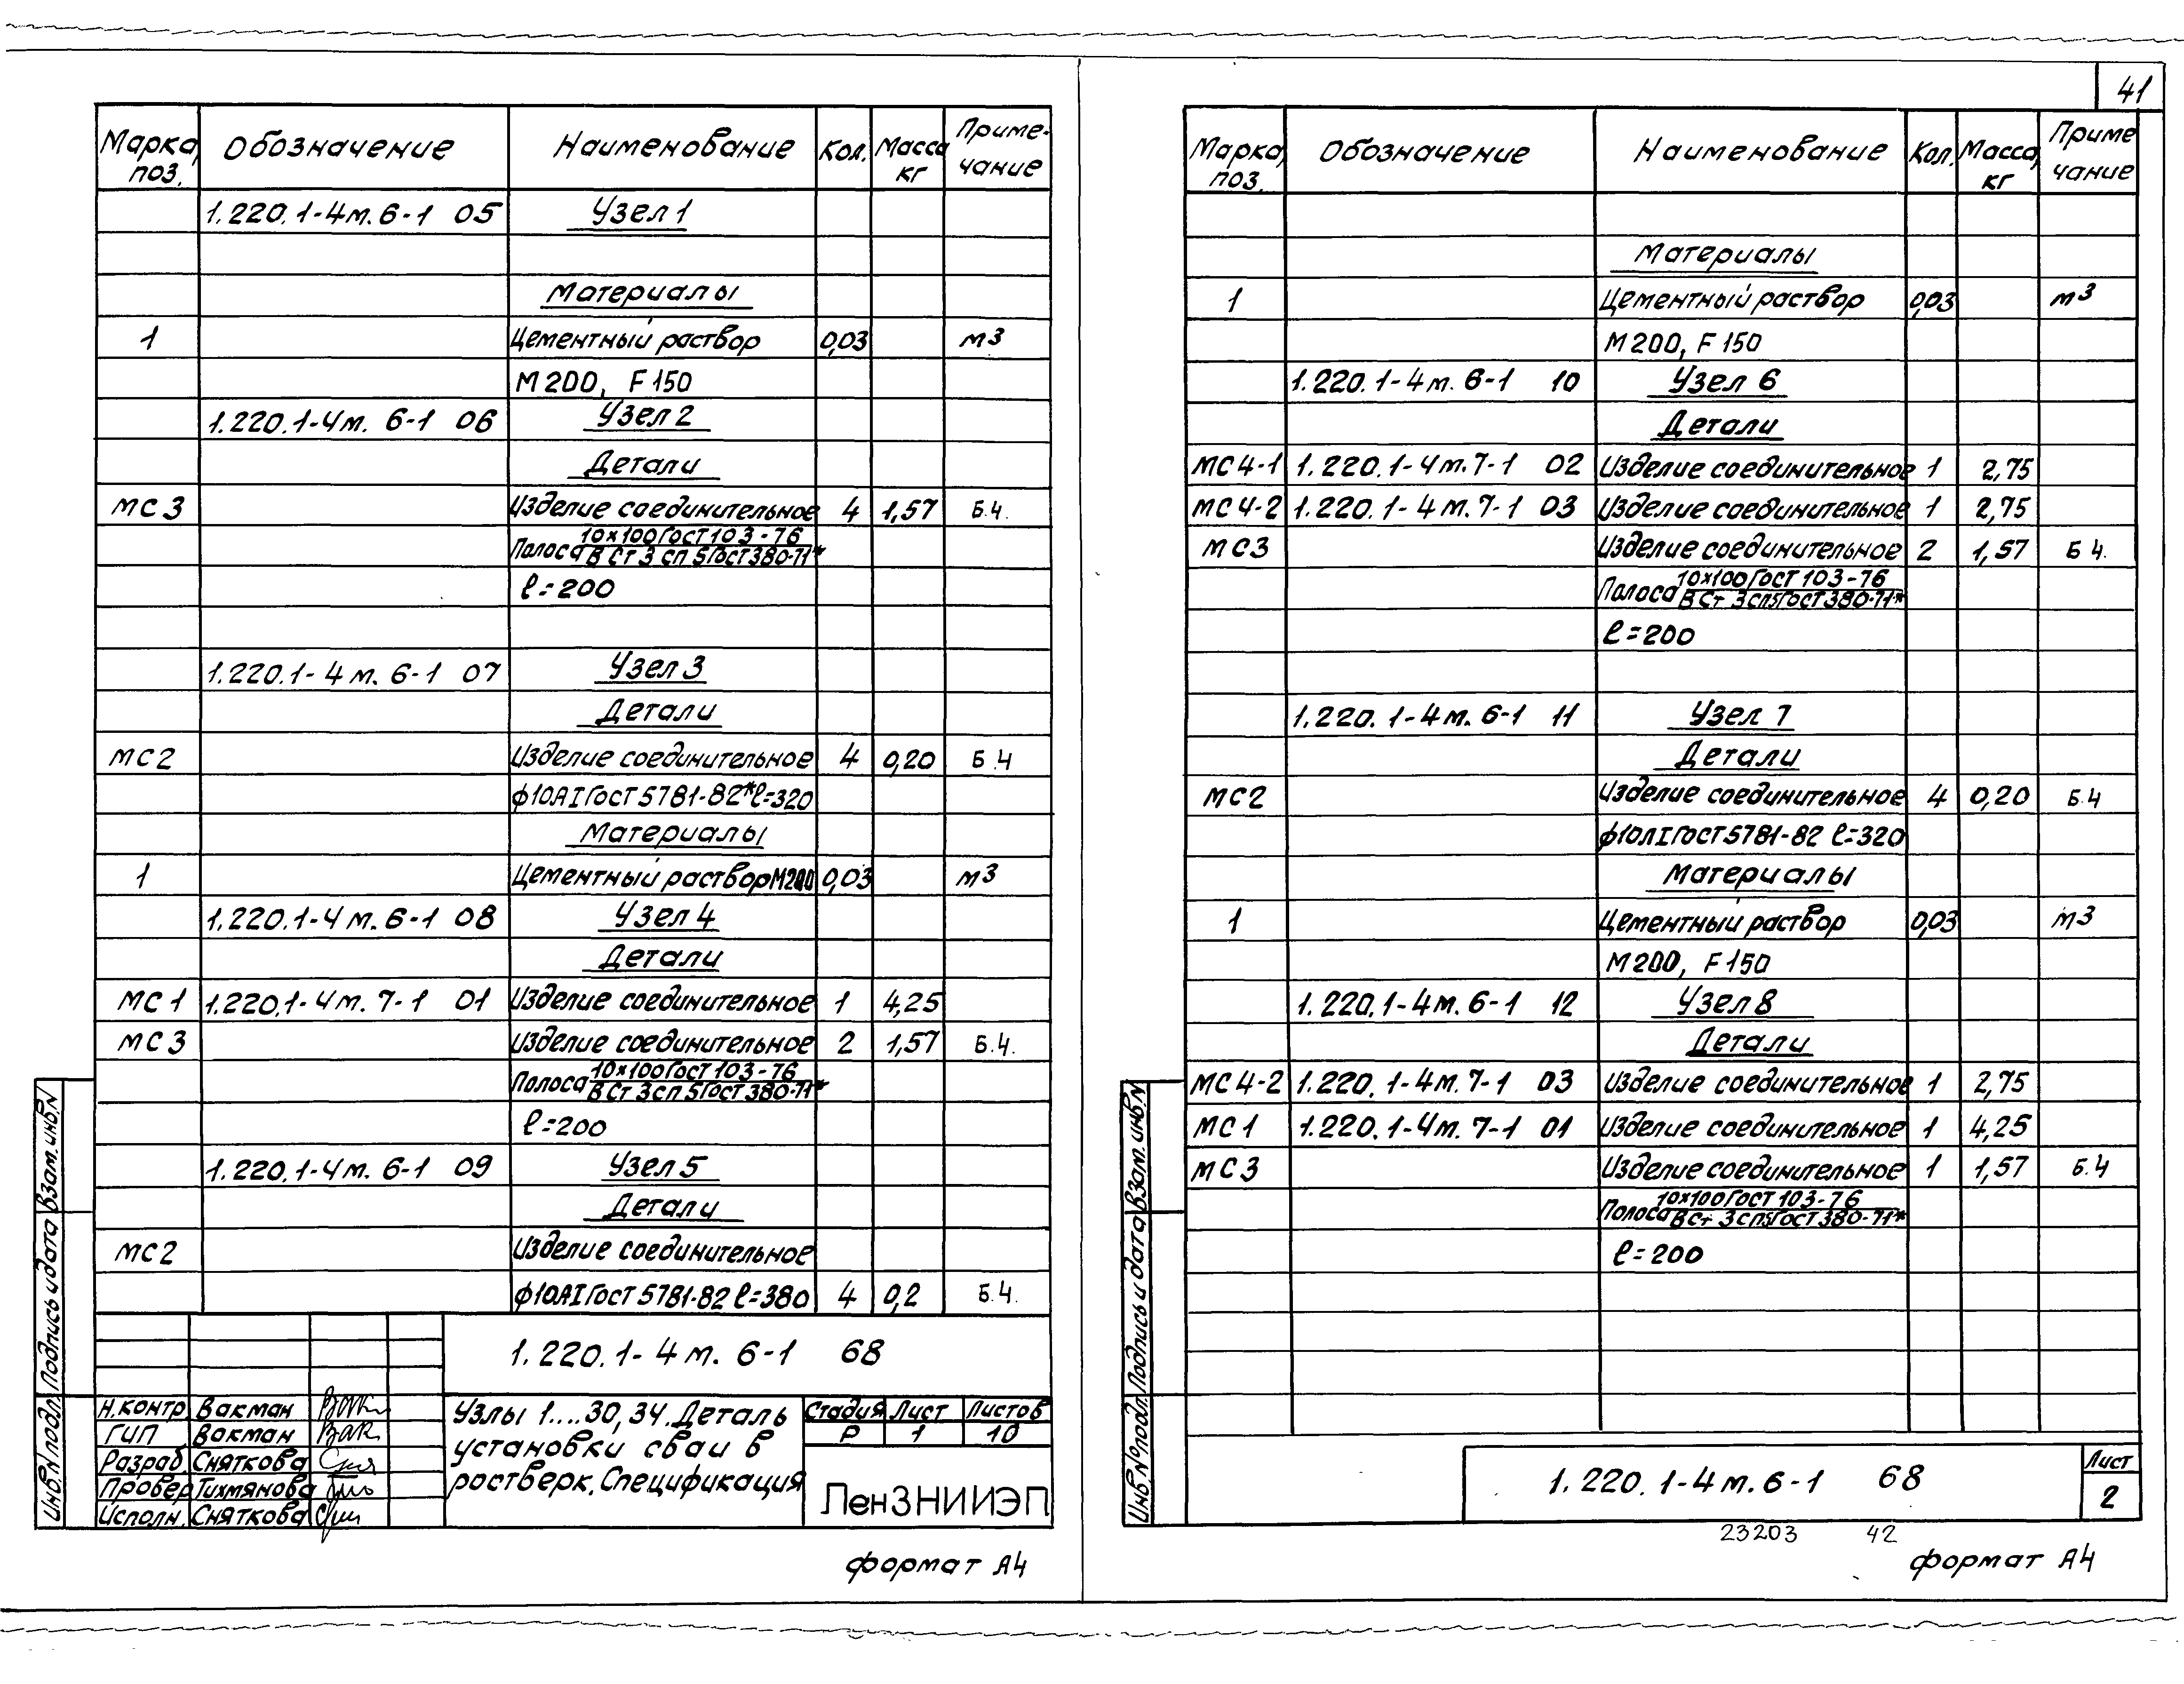 41
Марка, поз. Обозначение Наименование Кол. Масса кг Приме-чание
1.220.1-4м.6-1 05 Узел 1
Материалы
1 Цементный раствор 0,03 м3
М200, F150
1.220.1-4м. 6-1 06 Узел 2
Детали
МС3 Изделие соединительное 4 1,57 Б.4.
Полоса 10х100 Гост 103-76
В Ст 3 сп 5 Гост 380-71*
ℓ=200
1.220.1-4м. 6-1 07 Узел 3
Детали
МС2 Изделие соединительное 4 0,20 Б.4
ф10АI Гост 5781-82* ℓ=320
Материалы
1 Цементный раствор М200 0,03 м3
1.220.1-4м. 6-1 08 Узел 4
Детали
МС1 1.220.1-4м. 7-1 01 Изделие соединительное 1 4,25
МС3 Изделие соединительное 2 1,57 Б.4.
Полоса 10х100 Гост 103-76
В Ст 3 сп 5 Гост 380-71*
ℓ=200
1.220.1-4м. 6-1 09 Узел 5
Детали
МС2 Изделие соединительное
ф10АI Гост 5781-82 ℓ=380 4 0,2 Б.4.
1.220.1-4м. 6-1 68
Н.контр. Вакман
ГИП Вакман
Разраб. Сняткова
Провер Тихмянова
Исполн. Сняткова
Узлы 1....30,34. Деталь
установки сваи в
ростверк. Спецификация
Стадия Лист Листов
Р 1 10
ЛенЗНИИЭП
Инв.N подл. Подпись и дата Взам. инв.N
формат А4
Марка, поз. Обозначение Наименование Кол. Масса, кг Приме чание
Материалы
1 Цементный раствор 0,03 м3
М200, F150
1.220.1-4м. 6-1 10 Узел 6
Детали
МС4-1 1.220.1-4м.7-1 02 Изделие соединительное 1 2,75
МС4-2 1.220.1-4м. 7-1 03 Изделие соединительное 1 2,75
МС3 Изделие соединительное 2 1,57 Б 4.
Полоса 10х100 Гост 103-76
В Ст 3 сп5 Гост 380-71*
ℓ=200
1.220.1-4м. 6-1 11 Узел 7
Детали
МС2 Изделие соединительное 4 0,20 Б.4
ф10АI Гост 5781-82 ℓ=320
Материалы
1 Цементный раствор 0,03 м3
М200, F150
1.220.1-4м. 6-1 12 Узел 8
Детали
МС4-2 1.220.1-4м. 7-1 03 Изделие соединительное 1 2,75
МС1 1.220.1-4м. 7-1 01 Изделие соединительное 1 4,25
МС3 Изделие соединительное 1 1,57 Б.4
Полоса 10х100 Гост 103-76
В Ст 3 сп5 Гост 380-71*
ℓ=200
1.220.1-4м.6-1 68
Лист
2
Инв.№ подл. Подпись и дата Взам. инв.N
23203 42
формат А4